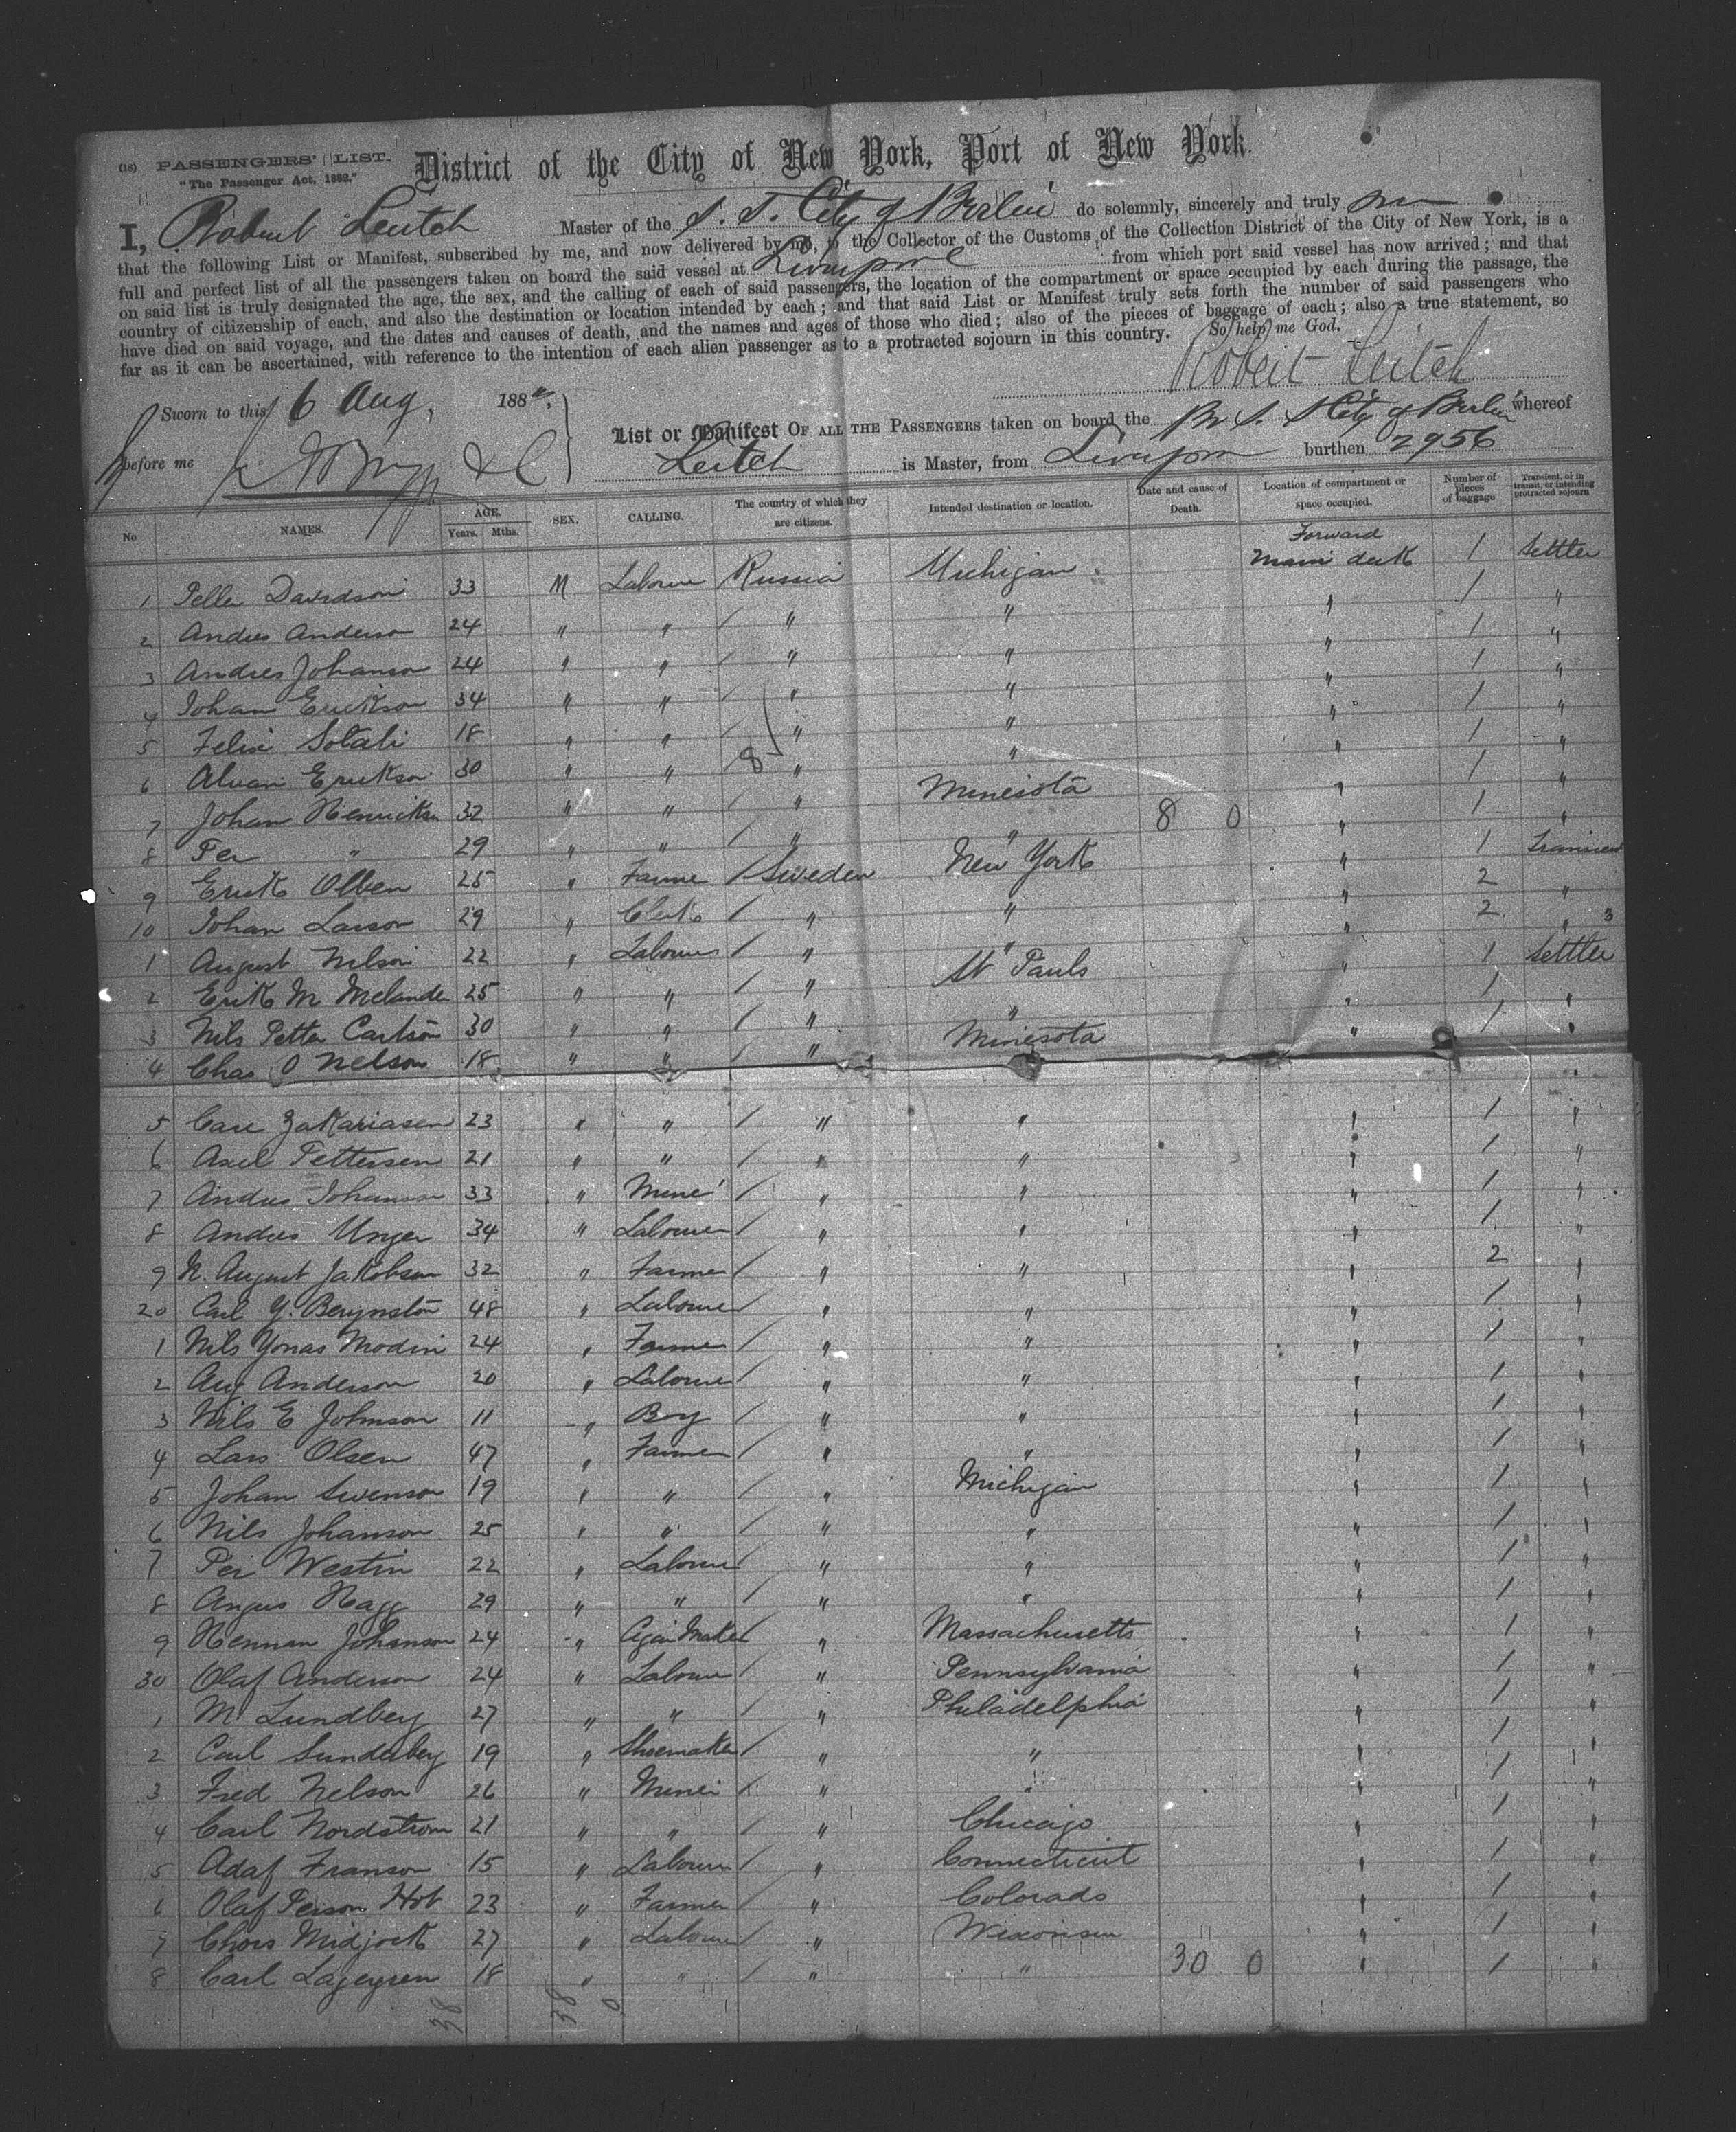 (18) PASSENGERS' LIST.
"The Passenger Act, 1882."
District of the City of New York, Port of New York.
I, Robert Leitch Master of the S. S. City of Berlin do solemnly, sincerely and truly
that the following List or Manifest, subscribed by me, and now delivered by me, to the Collector of the Customs of the Collection District of the City of New York, is a
full and perfect list of all the passengers taken on board the said vessel at Liverpool from which port said vessel has now arrived; and that
on said list is truly designated the age, the sex, and the calling of each of said passengers, the location of the compartment or space occupied by each during the passage, the
country of citizenship of each, and also the destination or location intended by each; and that said List or Manifest truly sets forth the number of said passengers who
have died on said voyage, and the dates and causes of death, and the names and ages of those who died; also of the pieces of baggage of each; also a true statement, so
far as it can be ascertained, with reference to the intention of each alien passenger as to a protracted sojourn in this country. So help me God.
Robert Leitch
Sworn to this 6 Aug, 188
before me
List or Manifest OF ALL THE PASSENGERS taken on board the Br S. S City of Berlin whereof
Leitch is Master, from Liverpool burthen 2956
No NAMES. AGE. Years. Mths. SEX. CALLING. The country of which they are citizens. Intended destination or location. Date and cause of Death. Location of compartment or space occupied. Number of pieces of baggage Transient, or in transit, or intending protracted sojourn
1 Petter Davidson 33 M Labourer Russia Michigan Forward Main deck 1 Settler
2 Andres Anderson 24 " " / " " " 1 "
3 Andres Johanson 24 " " / " " " 1 "
4 Johan Erickson 34 " " / " " " 1 "
5 Felix Sotali 18 " " / " " " 1 "
6 Erickson 30 " " / 8 " " " 1 "
7 Johan Henrickson 32 " " / " Minesota " 1 "
8 Per " 29 " " / " " 8 0 " 1 "
9 Erick Olsen 25 " Farmer / Sweden New York " 1 Transient
10 Johan Larson 29 " Clerk / " " " 2 "
1 August Nelson 22 " Labourer / " " " 2 " 3
2 Erik M Melander 25 " " / " St Pauls " 1 Settler
3 Nils Petter Carlson 30 " " / " " " 1 "
4 Chas O Nelson 18 " " / " Minesota " 1 "
5 Carl Zakariasen 23 " " / " " " 1 "
6 Axel Pettersen 21 " " / " " " 1 "
7 Andres Johanson 33 " Miner / " " " 1 "
8 Andres Unger 34 " Labourer / " " " 1 "
9 N. August Jakobson 32 " Farmer / " " " 2 "
20 Carl G. 48 " Labourer / " " " 1 "
1 Nils Yonas Modin 24 " Farmer / " " " 1 "
2 Aug Anderson 20 " Labourer / " " " 1 "
3 Nils E Johnson 11 " Boy / " " " 1 "
4 Lars Olsen 47 " Farmer / " " " 1 "
5 Johan Swenson 19 " " / " Michigan " 1 "
6 Nils Johanson 25 " " / " " " 1 "
7 Per Westin 22 " Labourer / " " " 1 "
8 Angus Hagg 29 " " / " " " 1 "
9 Herman Johanson 24 " Cigar Maker / " Massachusetts " 1 "
30 Olaf Anderson 24 " Labourer / " Pennsylvania " 1 "
1 M Lundberg 27 " " / " Philadelphia " 1 "
2 Carl Sunderberg 19 " Shoemaker / " " " 1 "
3 Fred Nelson 26 " Miner / " " " 1 "
4 Carl Nordstrom 21 " " / " Chicago " 1 "
5 Adaf Franson 15 " Labourer / " Connecticut " 1 "
6 Olaf Person Hot 23 " Farmer / " Colorado " 1 "
7 Chors Midjock 27 " Labourer / " Wisconsin " 1 "
8 Carl Lagegren 18 " " / " " 30 0 " 1 "
38 38 0